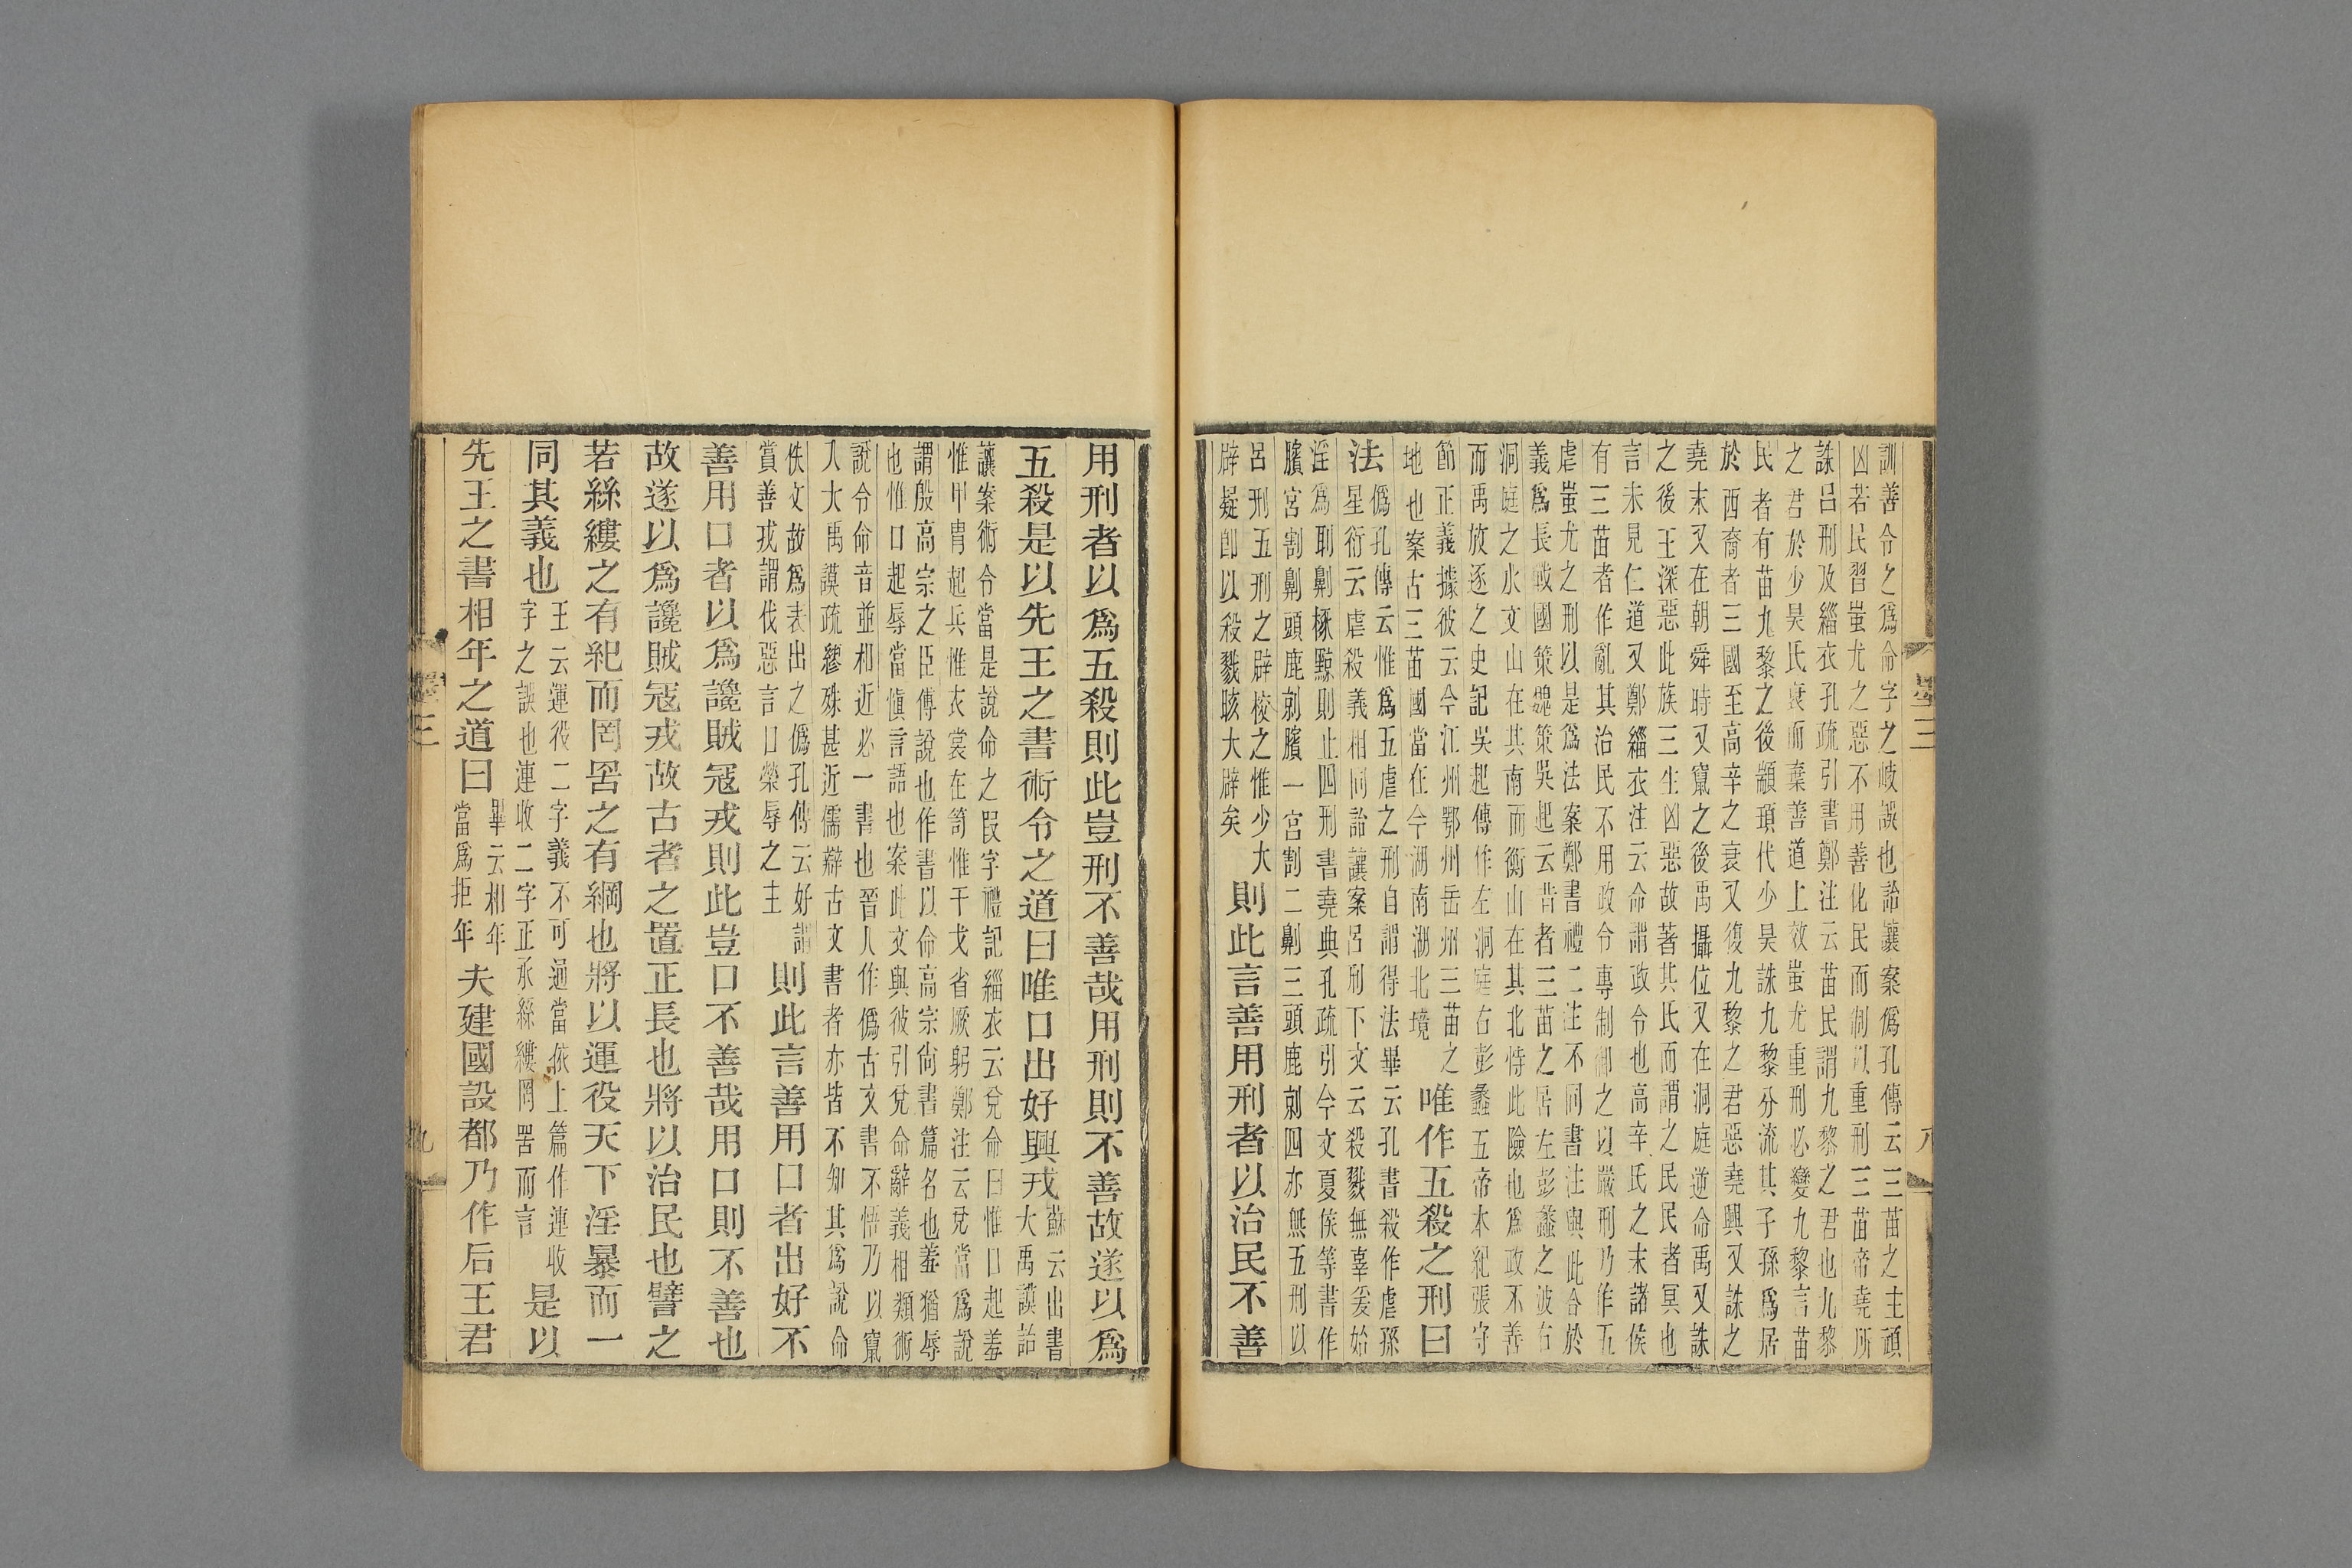 訓善令之爲命字之岐誤也詒讓案僞孔傳云三苗之主頑
凶若民習蚩尤之惡不用善化民而制以重刑三苗帝堯所
誅呂刑及緇衣孔疏引書鄭注云苗民謂九黎之君也九黎
之君於少昊氏衰而棄善道上效蚩尤重刑必變九黎言苗
民者有苗九黎之後顓頊代少昊誅九黎分流其子孫爲居
於西裔者三國至高辛之衰又復九黎之君惡堯興又誅之
堯末又在朝舜時又竄之後禹攝位又在洞庭逆命禹又誅
之後王深惡此族三生凶惡故著其氏而謂之民民者冥也
言未見仁道又鄭緇衣注云命謂政令也高辛氏之末諸侯
有三苗者作亂其治民不用政令專制御之以嚴刑乃作五
虐蚩尤之刑以是爲法案鄭書禮二注不同書注與此合於
義爲長戰國策魏策吳起云昔者三苗之居左彭蠡之波右
洞庭之水文山在其南而衡山在其北恃此險也爲政不善
而禹放逐之史記吳起傳作左洞庭右彭蠡五帝本紀張守
節正義據彼云今江州鄂州岳州三苗之
地也案古三苗國當在今湖南湖北境
唯作五殺之刑曰
法
僞孔傳云惟爲五虐之刑自謂得法畢云孔書殺作虐孫
星衍云虐殺義相同詒讓案呂刑下文云殺戮無辜爰始
淫爲刵劓椓黥則止四刑書堯典孔疏引今文夏侯等書作
臏宮割劓頭鹿剠臏一宮割二劓三頭鹿剠四亦無五刑以
呂刑五刑之辟校之惟少大
辟疑卽以殺戮賅大辟矣
則此言善用刑者以治民不善
墨三
八
用刑者以爲五殺則此豈刑不善哉用刑則不善故遂以爲
五殺是以先王之書術令之道曰唯口出好興戎
蘇云出書
大禹謨詒
讓案術令當是說命之叚字禮記緇衣云兌命曰惟口起羞
惟甲冑起兵惟衣裳在笥惟干戈省厥躬鄭注云兌當爲說
謂殷高宗之臣傅說也作書以命高宗尙書篇名也羞猶辱
也惟口起辱當愼言語也案此文與彼引兌命辭義相類術
說令命音並相近必一書也晉人作僞古文書不悟乃以竄
入大禹謨疏繆殊甚近儒辯古文書者亦皆不知其爲說命
佚文故爲表出之僞孔傳云好謂
賞善戎謂伐惡言口榮辱之主
則此言善用口者出好不
善用口者以爲讒賊寇戎則此豈口不善哉用口則不善也
故遂以爲讒賊寇戎故古者之置正長也將以治民也譬之
若絲縷之有紀而罔罟之有綱也將以運役天下淫暴而一
同其義也
王云運役二字義不可通當依上篇作連收
字之誤也連收二字正承絲縷罔罟而言
是以
先王之書相年之道曰
畢云相年
當爲拒年
夫建國設都乃作后王君
墨三
九